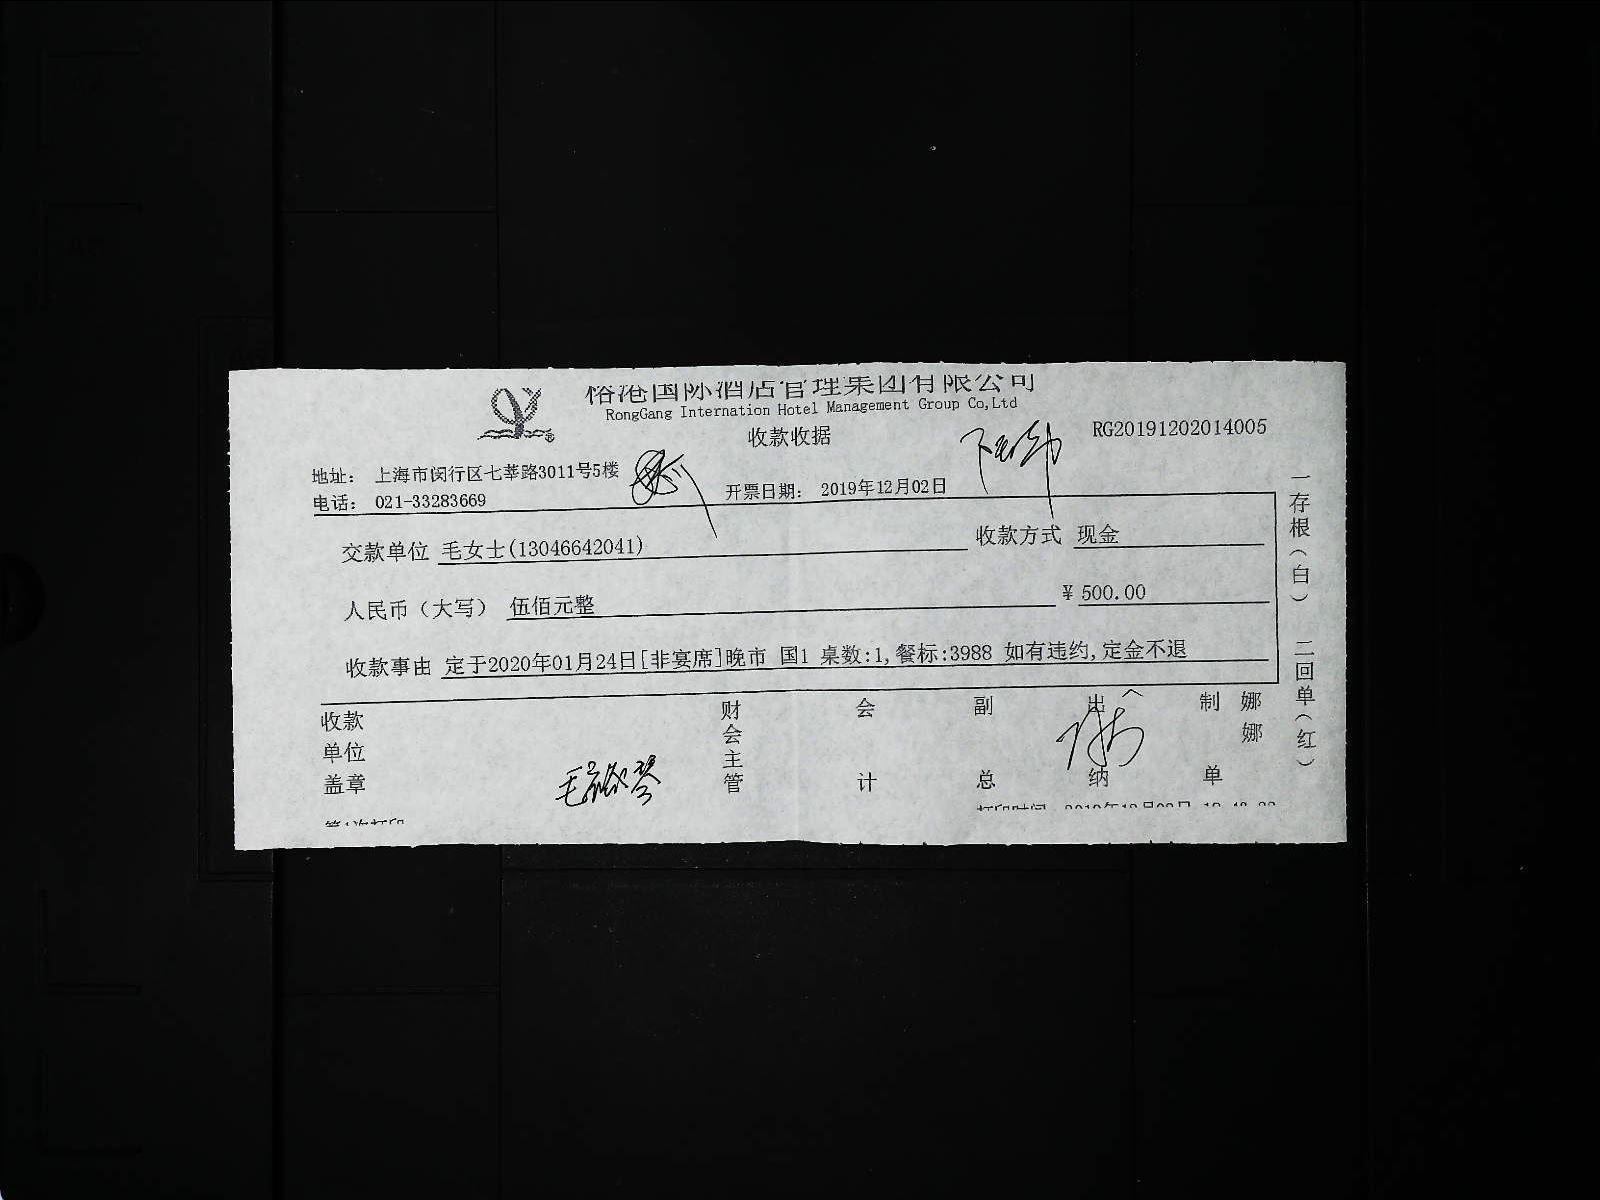 裕港国际酒店管理集团有限公司
RongGang Internation Hotel Management Group Co,Ltd
收款收据
RG20191202014005
地址： 上海市闵行区七莘路3011号5楼
电话： 021-33283669
开票日期： 2019年12月02日
交款单位 毛女士(13046642041)
收款方式 现金
人民币（大写） 伍佰元整
¥ 500.00
收款事由 定于2020年01月24日[非宴席]晚市 国1 桌数:1,餐标:3988 如有违约,定金不退
一存根（白） 二回单（红）
收款单位盖章
财会主管
会计
副总
出纳
制单
娜娜
第1次打印